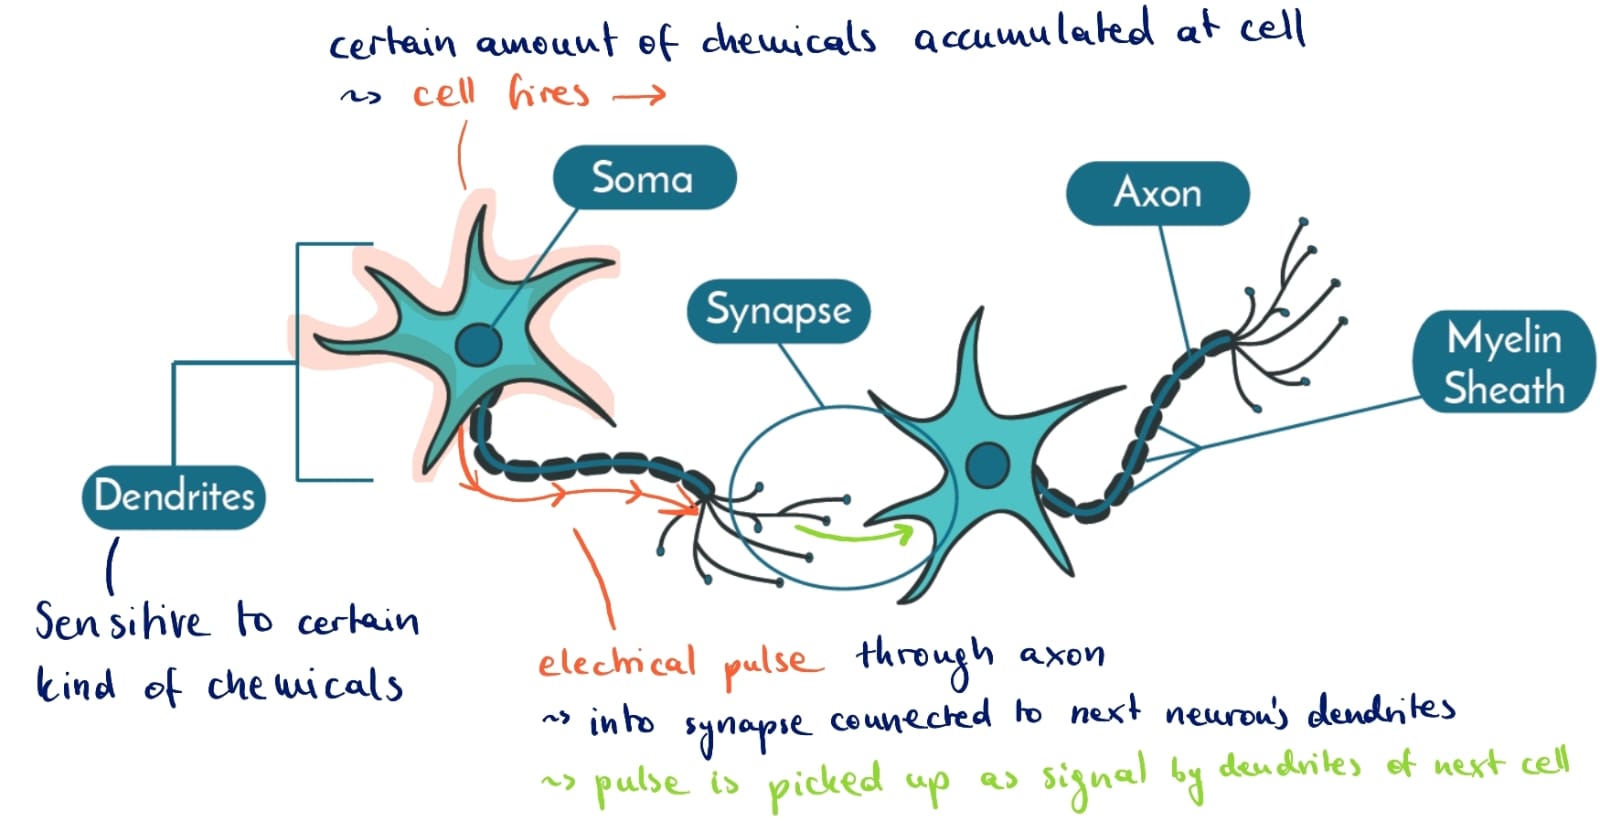 certain amount of chemicals accumulated at cell
~> cell fires →
Soma
Axon
Synapse
Myelin
Sheath
Dendrites
Sensitive to certain
kind of chemicals
electrical pulse through axon
~> into synapse connected to next neuron's dendrites
~> pulse is picked up as signal by dendrites of next cell